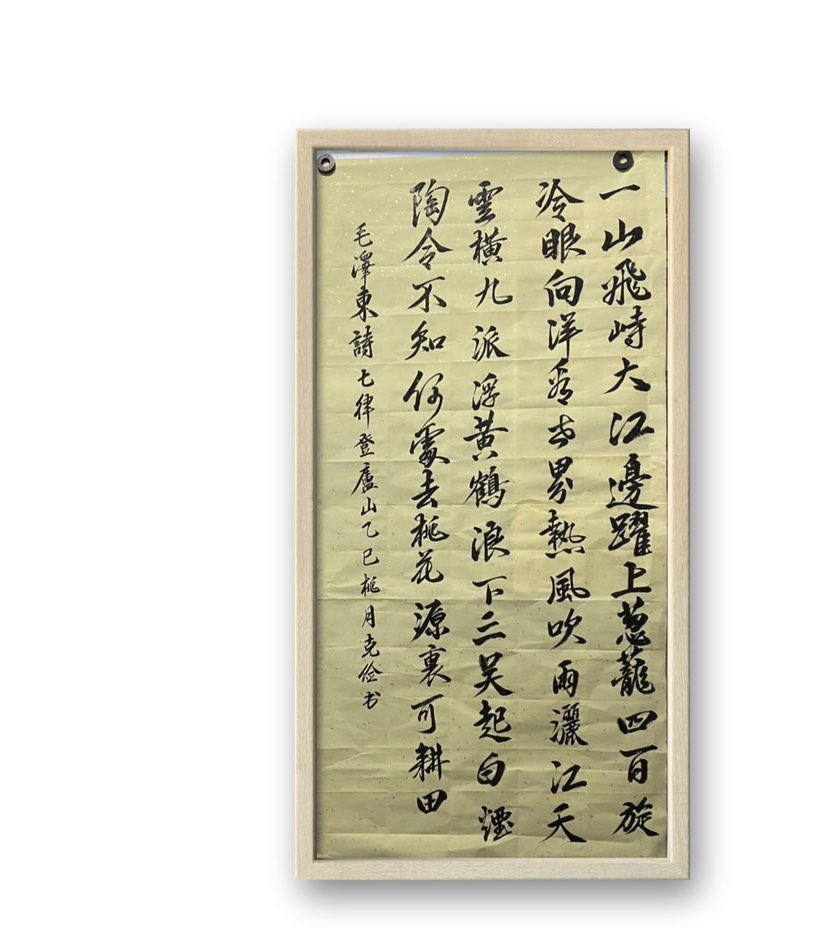 一山飛峙大江邊躍上葱蘢四百旋
冷眼向洋看世界熱風吹雨灑江天
雲橫九派浮黃鶴浪下三吴起白煙
陶令不知何處去桃花源裏可耕田
毛澤東詩七律登廬山乙巳桃月克俭书